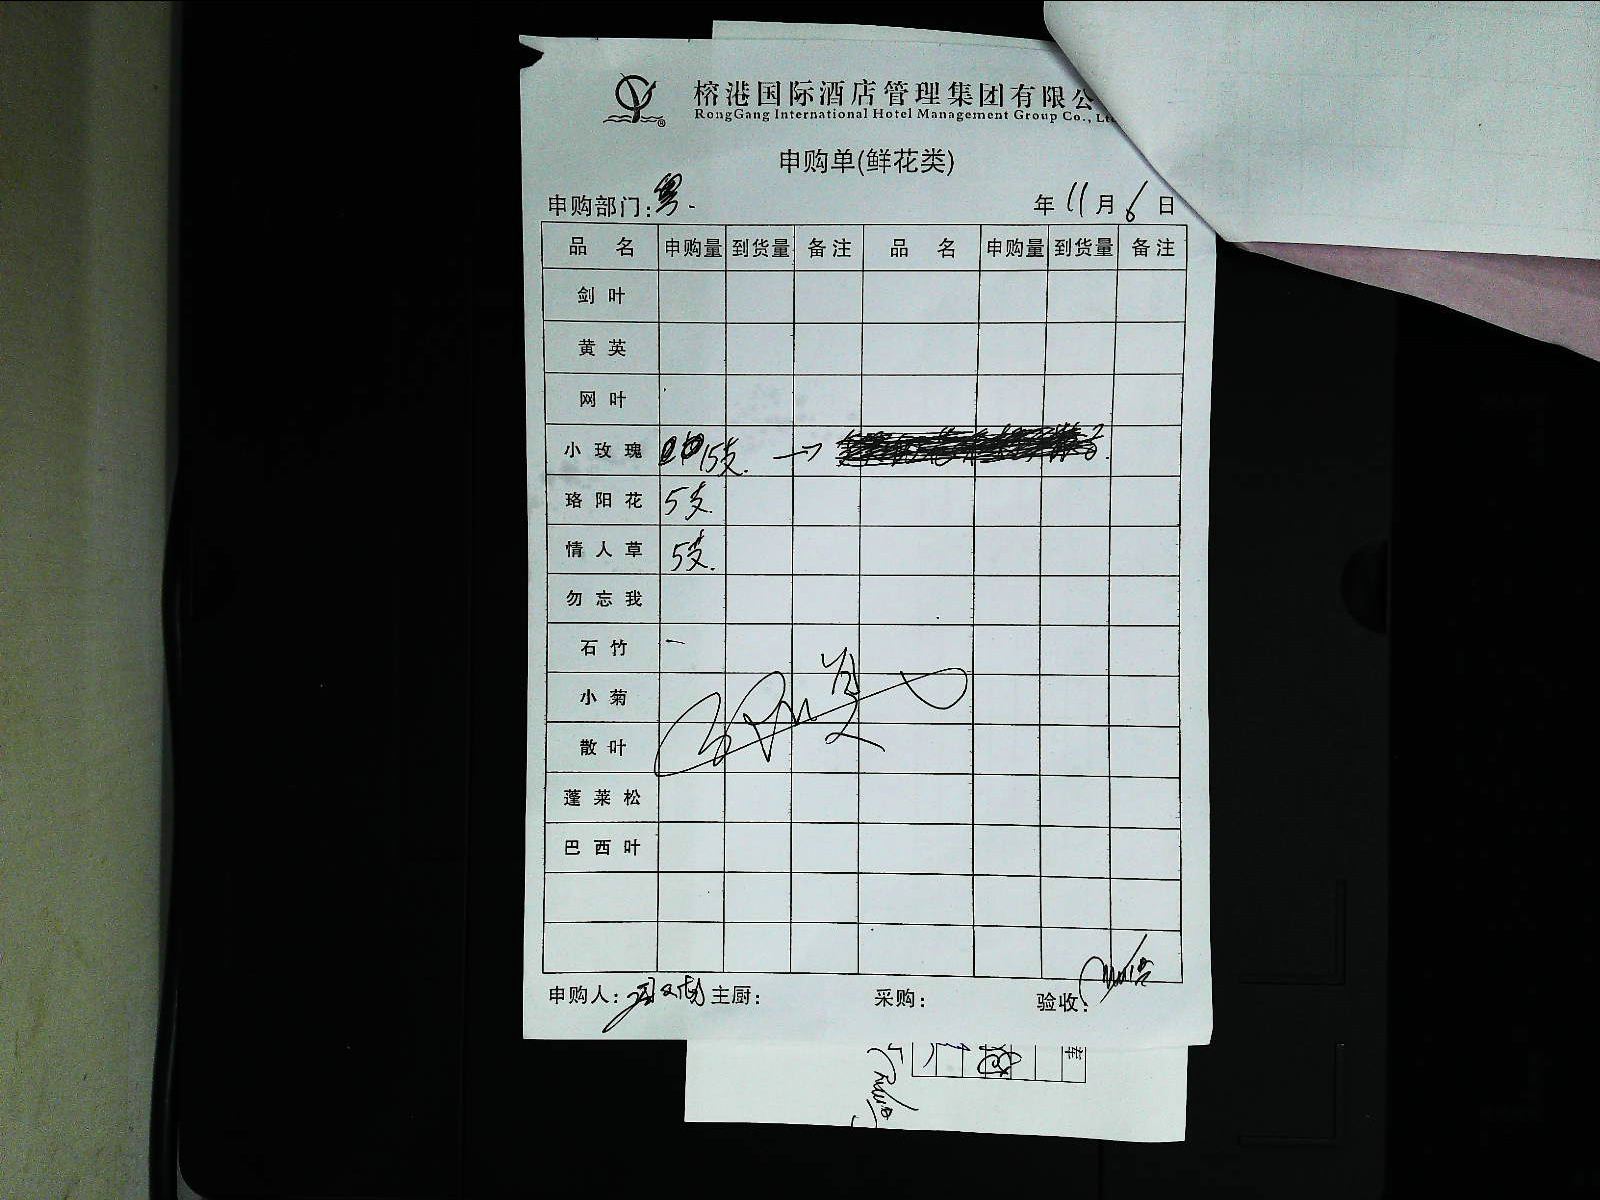 榕港国际酒店管理集团有限公
RongGang International Hotel Management Group Co., Lt
申购单(鲜花类)
申购部门: 粤
年 11 月 6 日
品 名 申购量 到货量 备注 品 名 申购量 到货量 备注
剑叶
黄英
网叶
小玫瑰 15支. →
珞阳花 5支.
情人草 5支.
勿忘我
石竹
小菊
散叶
蓬莱松
巴西叶
申购人: 主厨: 采购: 验收: